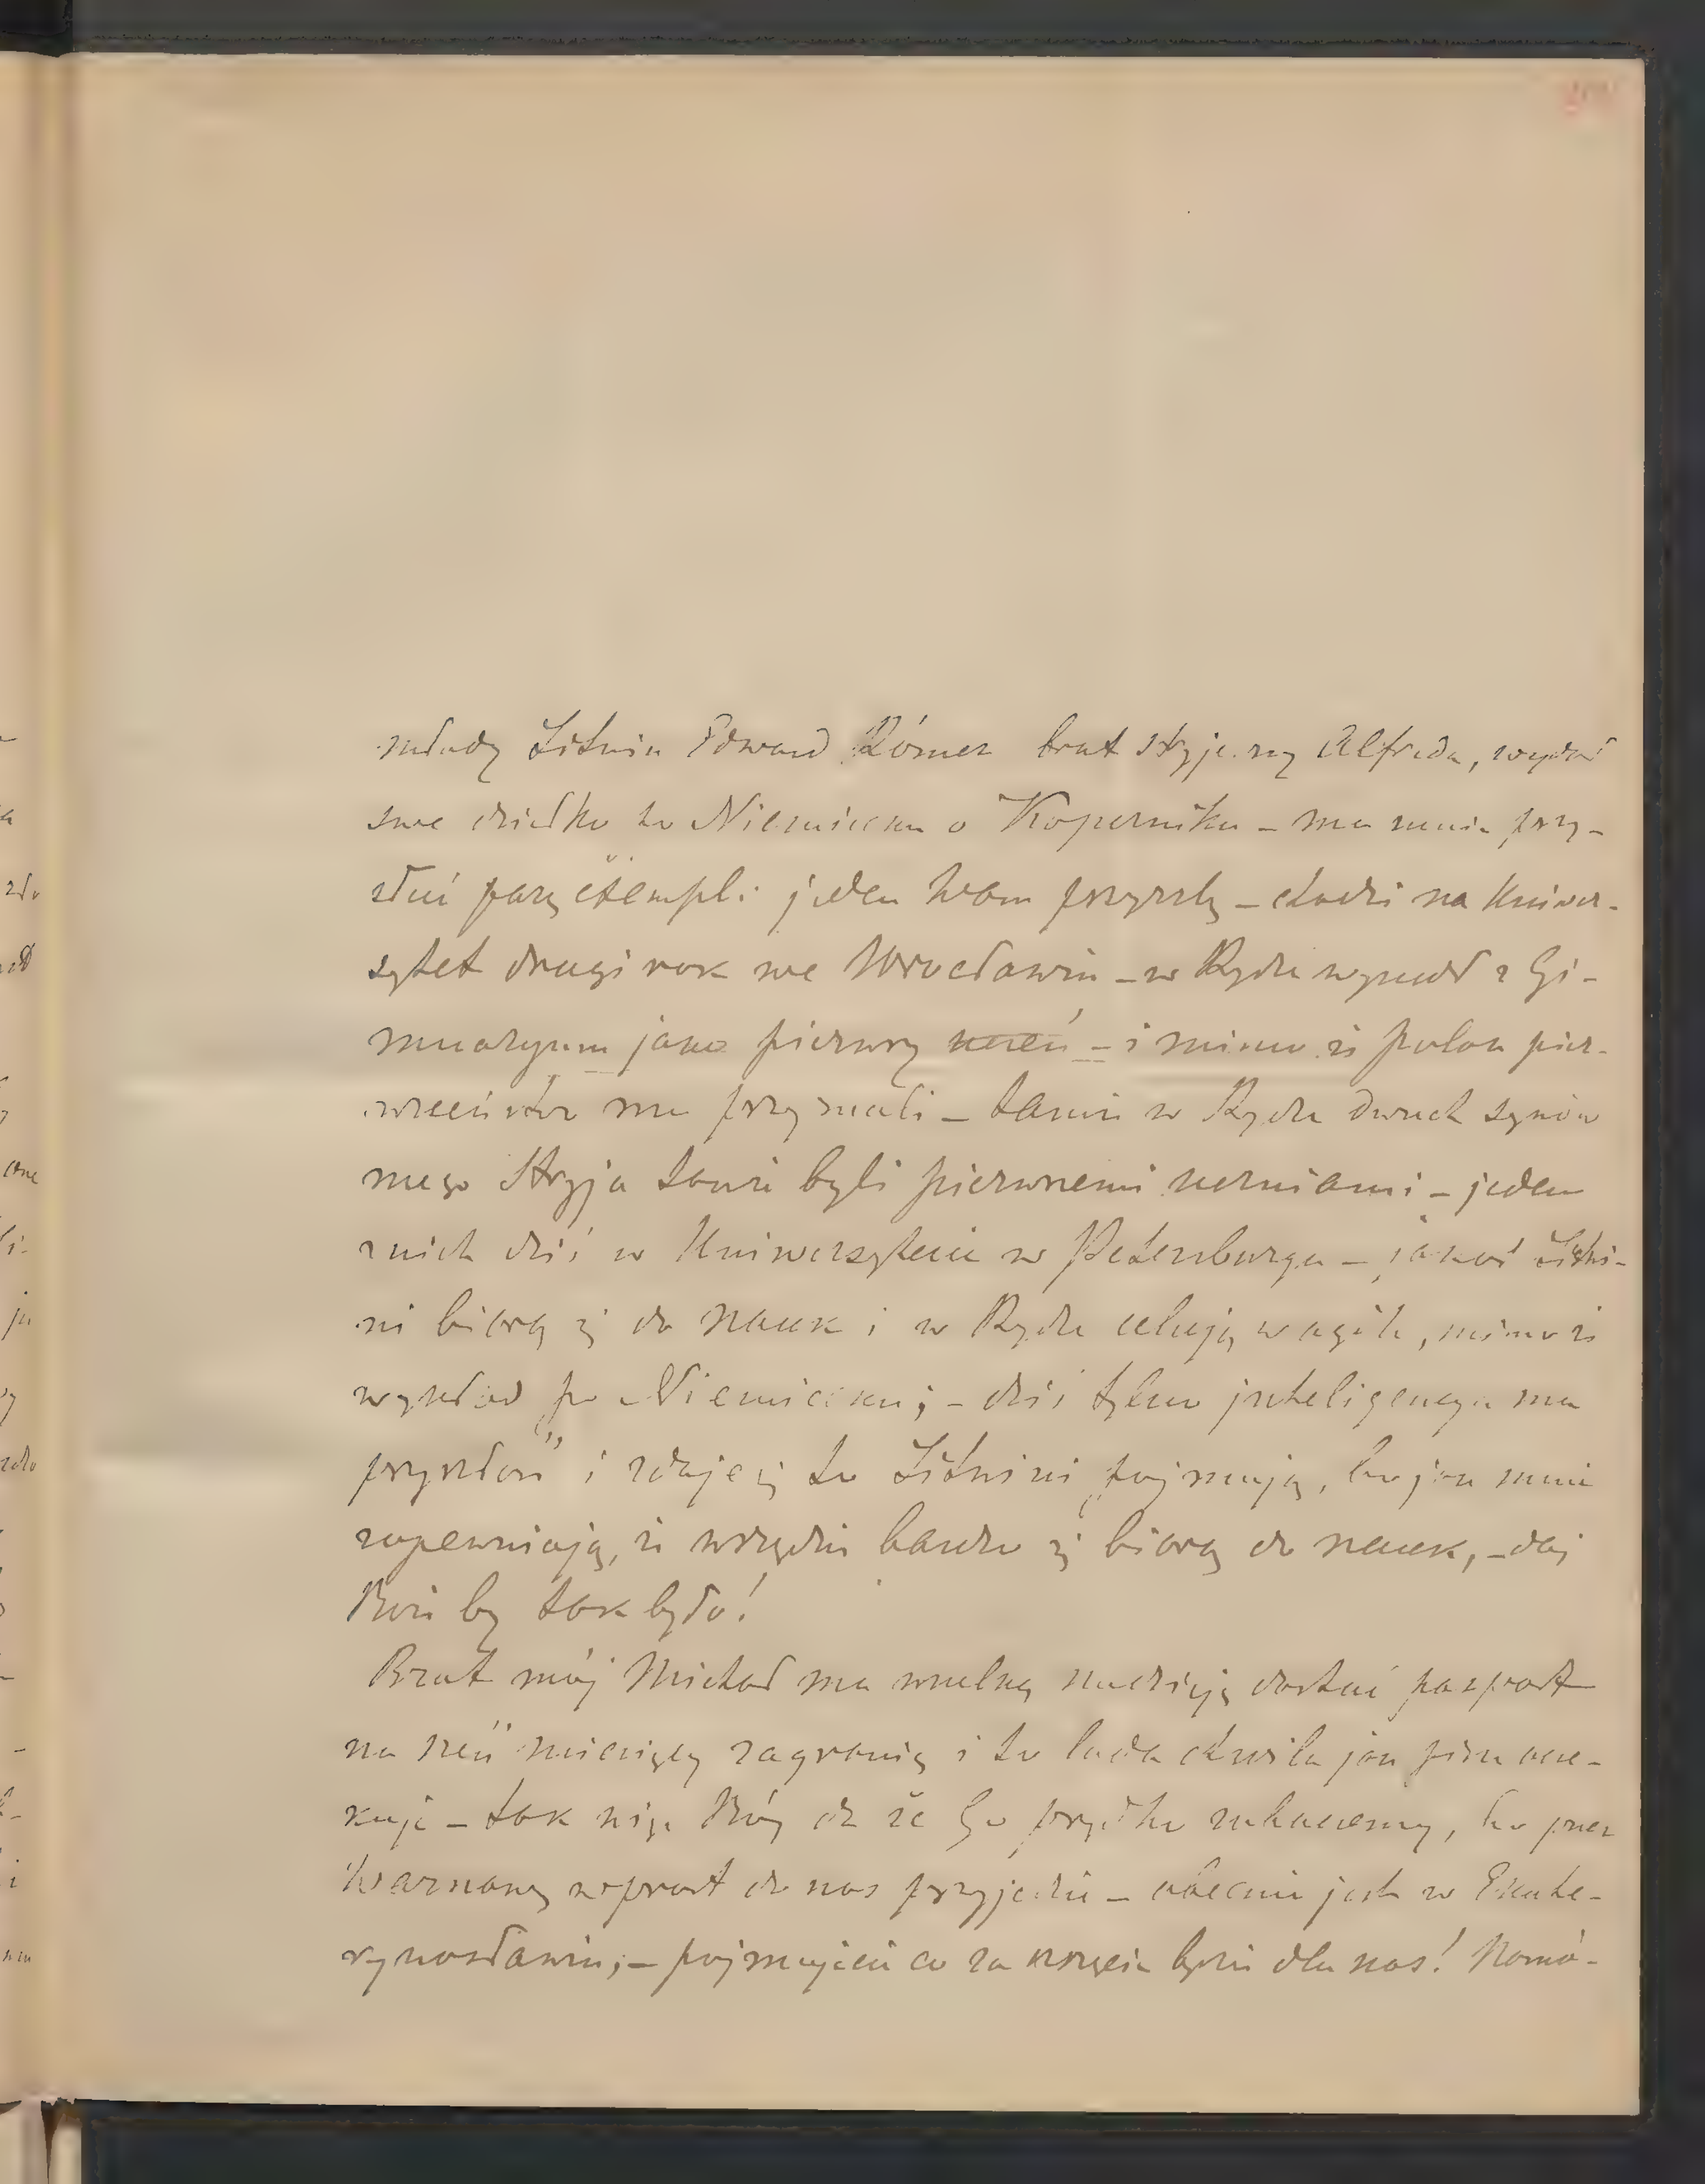 młody Litwin Edward Römer brat stryjeczny Alfreda, wydał
swe dziełko po Niemiecku o Koperniku – ma mnie przy-
słać parę exempl: jeden Wam przyszlę – chodzi na Uniwer-
sytet drugi rok we Wrocławiu – w Rydze wyszedł z Gi-
mnazyum jako pierwszy uczeń – i mimo iż polak pier-
wszeństwo mu przyznali – także w Rydze dwuch synów
mego Stryja także byli pierwszemi uczniami – jeden
z nich dziś w Uniwersytecie w Petersburgu – jakoś Litwi-
ni biorą się do nauk i w Rydze celują w ogóle, mimo iż
wykład po Niemiecku; – dziś tylko inteligencya ma
przyszłość i zdaje się to Litwini pojmują, bo jak mnie
zapewniają, iż wszędzie bardzo się biorą do nauk, – daj
Boże by tak było!
Brat mój Michał ma wszelką nadzieję dostać paszport
na sześć miesięcy zagranicę i to lada chwila jak pisze ocze-
kuje – tak więc Bóg da że Go prędko zobaczemy, bo przez
Warszawę wprost do nas przyjedzie – obecnie jest w Ekate-
rynosławiu; – pojmujecie co za szczęście będzie dla nas!